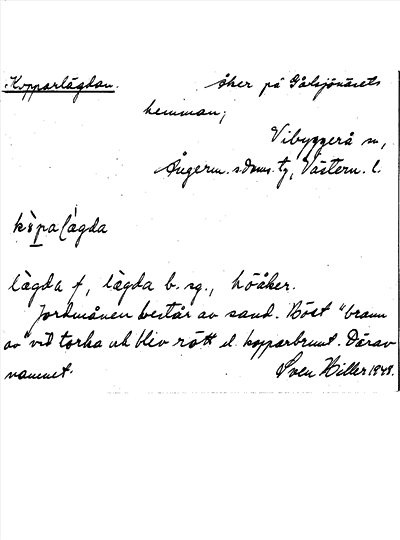 Kopparlägdan. åker på Gålsjönäsets
hemman;
Vibyggerå sn,
Ångerm. s. doms. tg, Västern. l.
kò̀pa lägda
lägda f, lägda b. sg., höåker.
Jordmånen består av sand. Höet "brann
av" vid torka och blev rött el. kopparbrunt. Därav
namnet. Sven Hiller 1948.